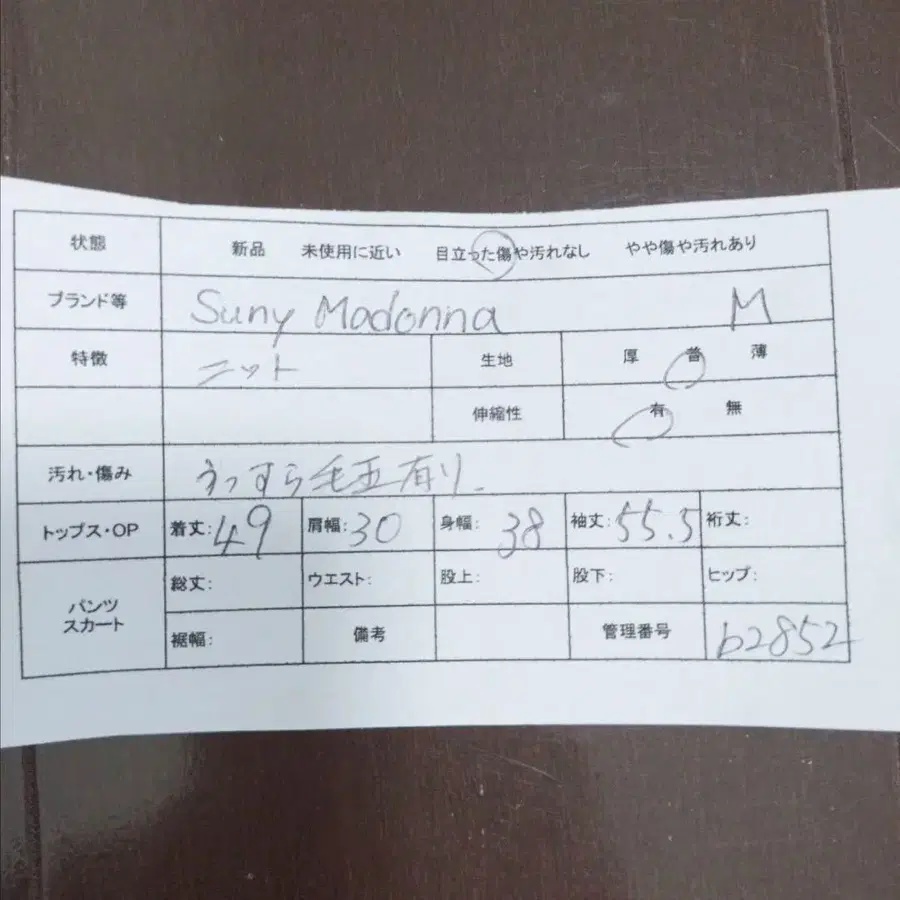 状態 新品 未使用に近い 目立った傷や汚れなし やや傷や汚れあり
ブランド等 Suny Madonna M
特徴 ニット 生地 厚 普 薄
伸縮性 有 無
汚れ・傷み うっすら毛玉有り.
トップス・OP 着丈:49 肩幅:30 身幅:38 袖丈:55.5 裄丈:
パンツ スカート 総丈: ウエスト: 股上: 股下: ヒップ:
裾幅: 備考 管理番号 b2852